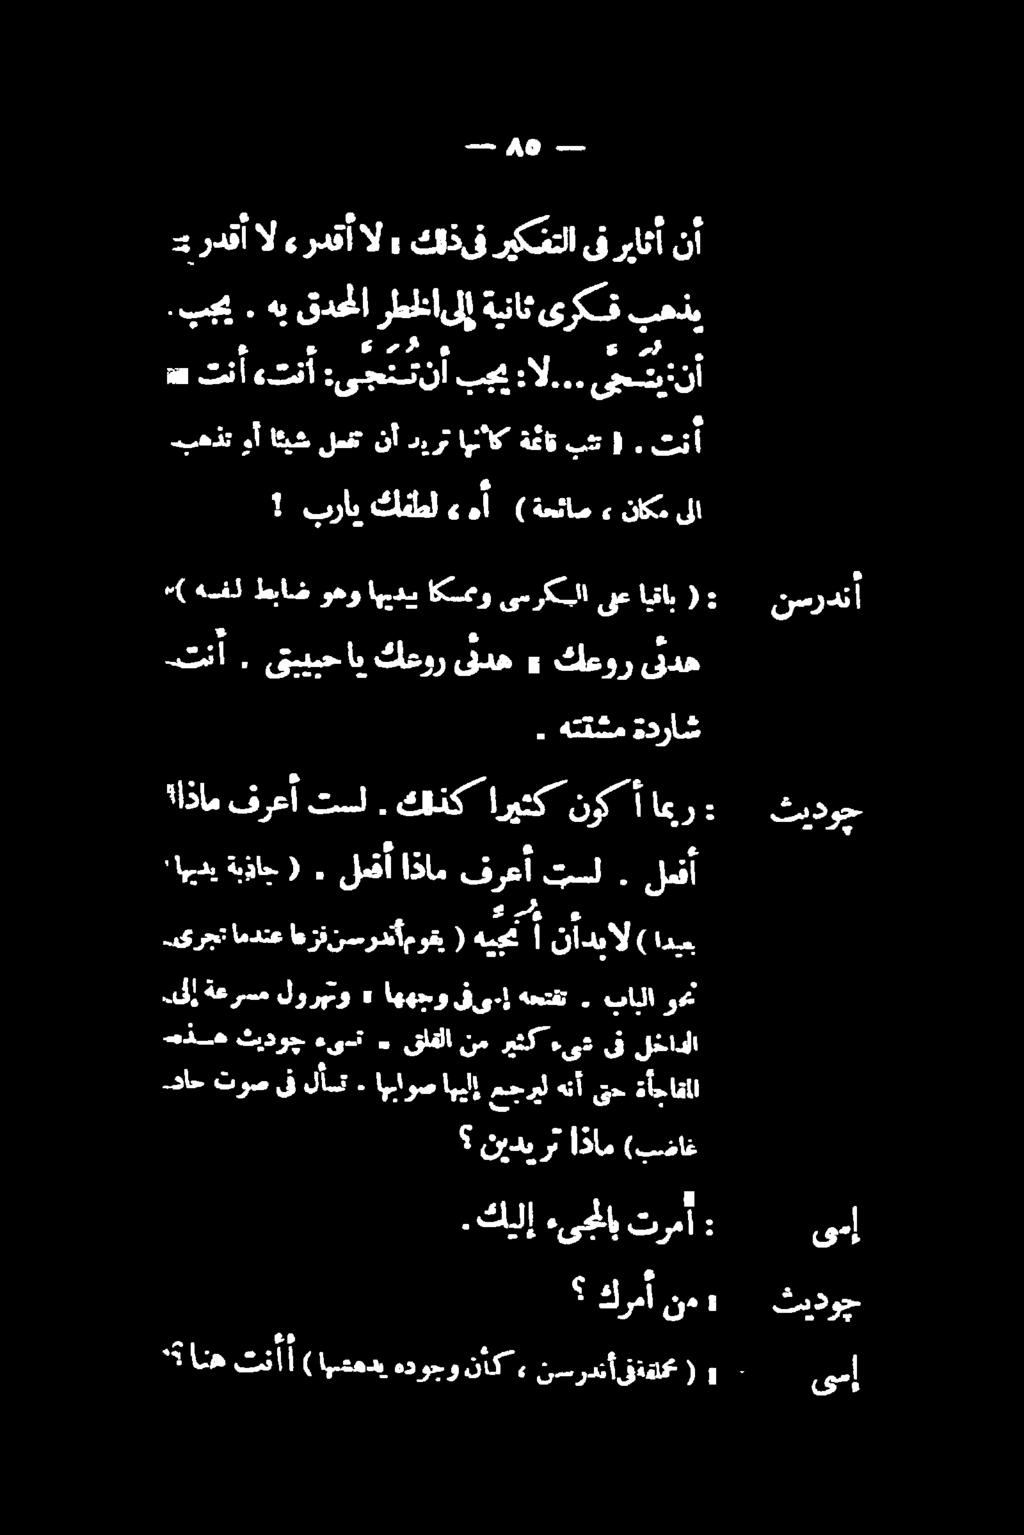 — ٨٥ —
أن أثابر فى التفكير فى ذلك ، لا أقدر ، لا أقدر ؛
يذهب فكرى ثانية إلى الخطر المحدق به . يجب
أن : يُنَجَّى ... لا : يجب أن تُنَجَّى : أنت ، أنت
أنت . ( تثب قائمة كأنها تريد أن تفعل شيئا أو تذهب
الى مكان ، صائحة ) أه ، لطفك يارب !
أندرسن : ( باقيا على الكرسى وممسكا بيديها وهو ضابط لنفسه )
هدئى روعك . هدئى روعك يا حبيبتى . أنت
شاردة مشتته .
چوديث : ربما أكون كثيرا كذلك . لست أعرف ماذا
أفعل . لست أعرف ماذا أفعل . ( جاذبة يديها
بعيدا ) لابد أن أُنَجِّيه ( يقوم أندرسن فزعا عندما تجرى
نحو الباب . تفتحه إسى فى وجهها ، وتهرول مسرعة إلى
الداخل فى شىء كثير من القلق . تسىء چوديث هـذه
المفاجأة حتى أنه ليرجع إليها صوابها . تسأل فى صوت حاد
غاضب ) ماذا تريدين ؟
إسى : أمرت بالمجىء إليك .
چوديث : من أمرك ؟
إسى : ( محملقة فى أندرسن ، كأن وجوده يدهشها ) أأنت هنا ؟